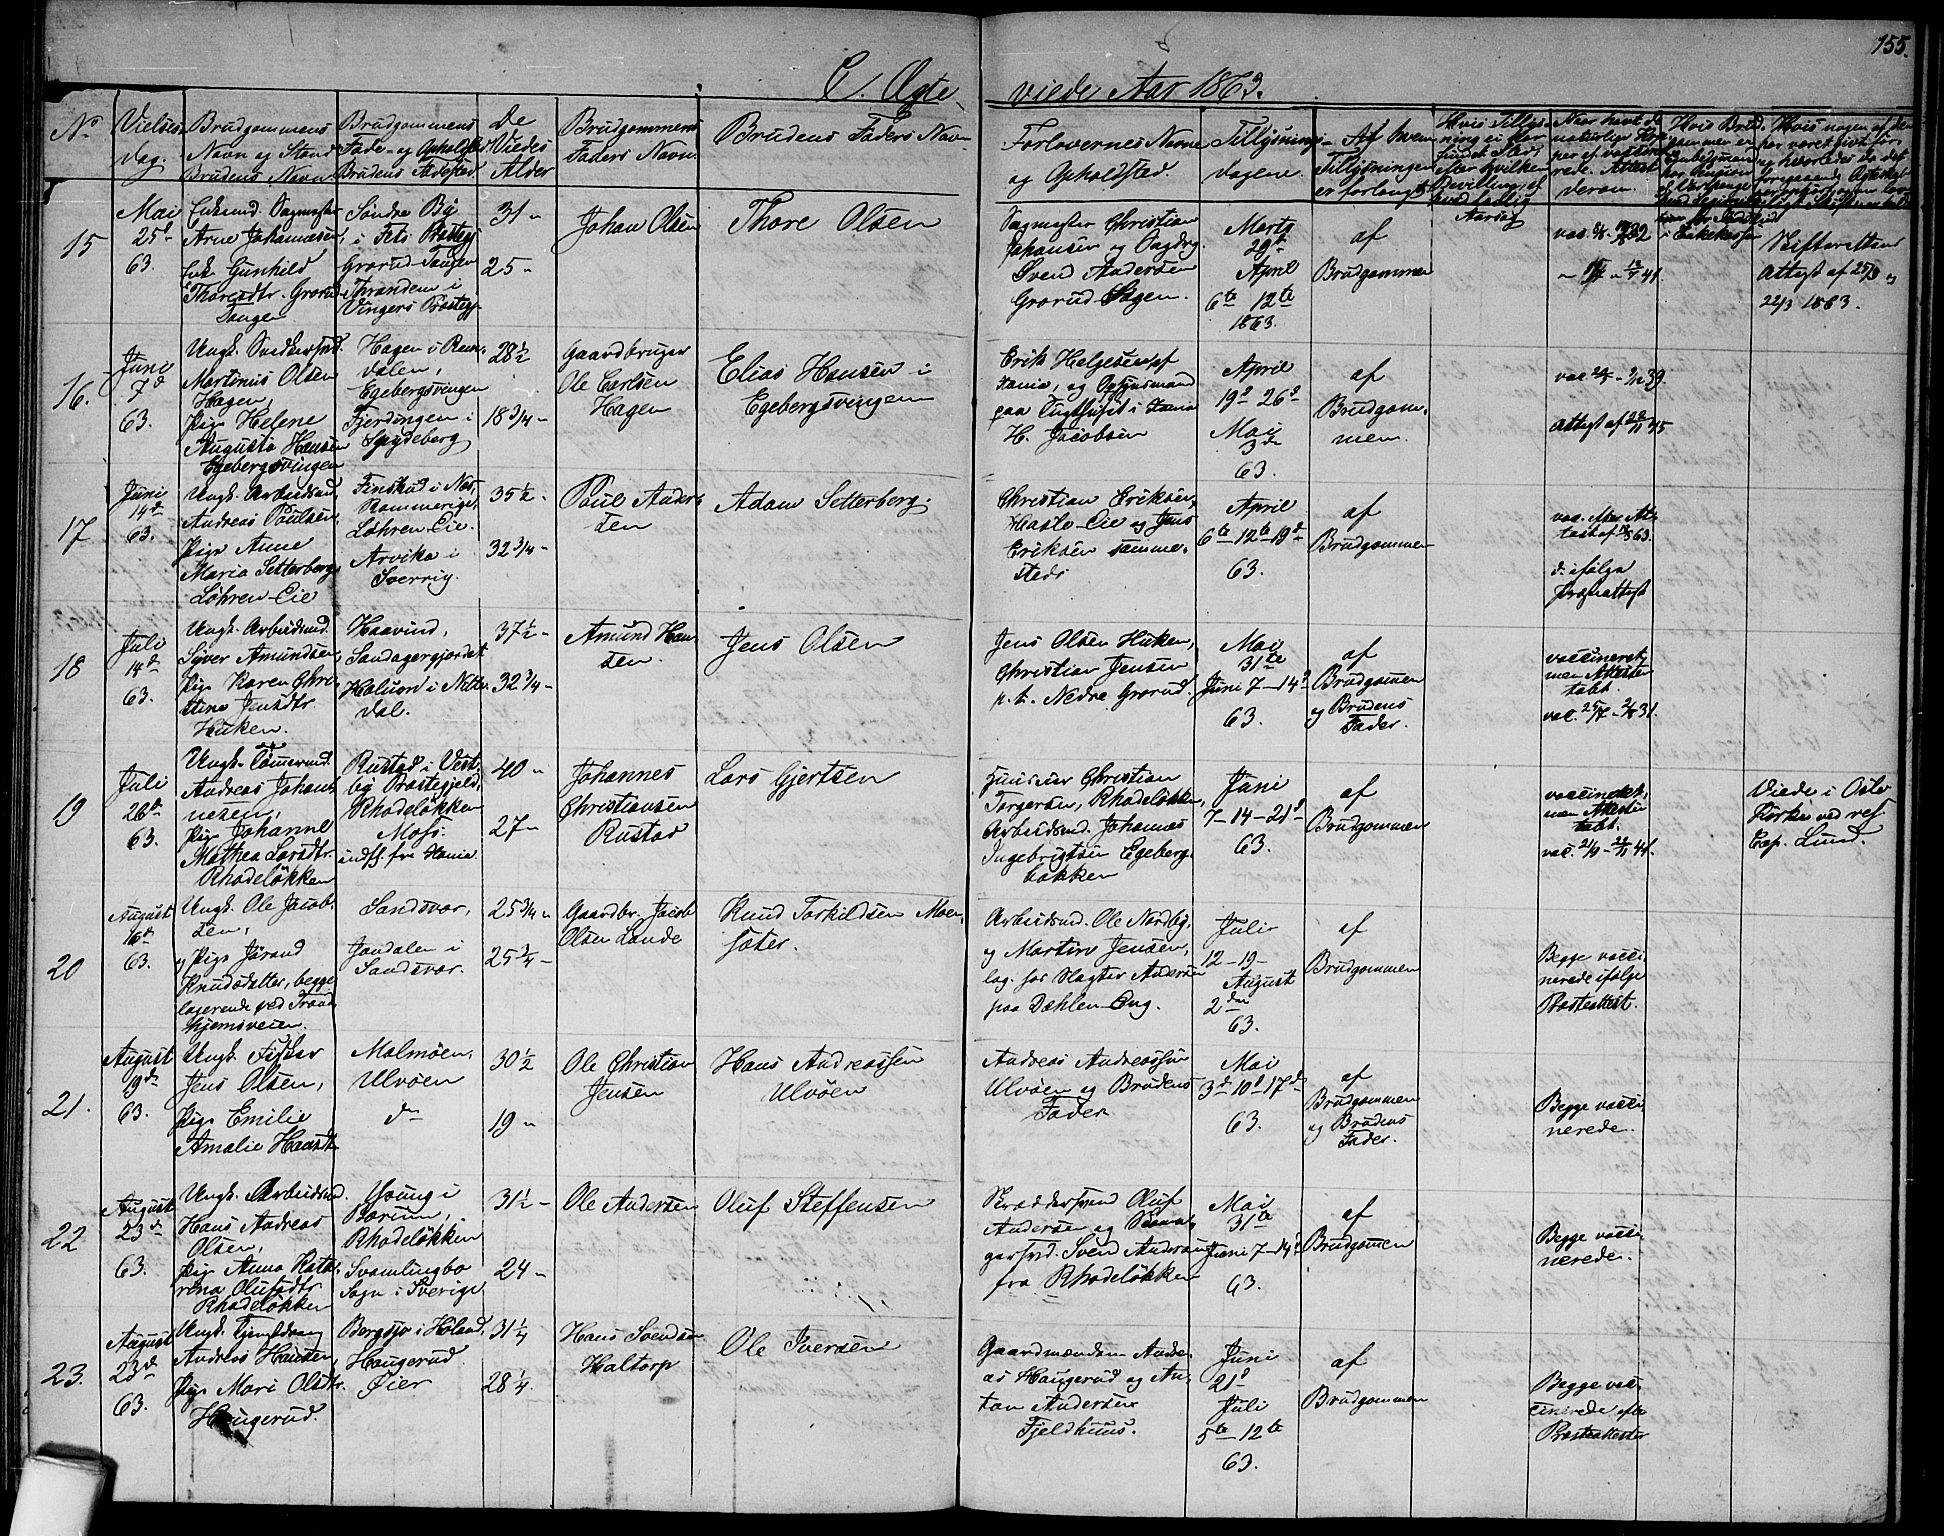 155.
C. Ægte viede Aar 1863.
No
Vielses dag.
Brudgommens Navn og Stand
Brudens Navn
Brudgommens Føde- og Opholdsst
Brudens Fødested
De Viedes Alder
Brudgommens Faders Navn
Brudens Faders Navn
Forlovernes Navne og Opholdsted
Tillysnings dagene
Af hvem Tillysningen er forlangt
15
Mai
25d
63.
Enkemd. Sagmester
Arne Johannesen,
Enke Gunhild
Thoresdtr. Grorud
Tangen
Søndre By
i Fets Præstegj
Grorud-Tangen
Thrandem i
Vingers Præstegj.
31 "
25 "
Johan Olsen
Thore Olsen
Sagmester Christian
Johansen og Sagdrg.
Svend Andersen
Grorud-Sagen.
Marts
29de
April
6te 12te
1863.
af
Brudgommen
Skifterettens
Attest af 27/3 og
22/3 1863.
16.
Juni
7d
63.
Ungk. Snedkersvd.
Martinus Olsen
Hagen,
Pige Helene
Augusta Hansen
Egebergsvingen
Hagen i Rom-
dalen,
Egebergsvingen
Fjerdingen i
Spydeberg
28 1/2
18 3/4 "
Gaardbruger
Ole Carlsen
Hagen
Elias Hansen i
Egebergsvingen
Erik Helgesen af
Xania, og Opsynsmand
paa Tugthuset i Xania
H. Jacobsen
April
19d 26d
Mai
3de
63.
af
Brudgom-
men.
17
Juni
14de
63.
Ungk. Arbeidsmd.
Andreas Poulsen,
Pige Anne
Maria Setterberg
Løhren-Eie
Finstad i Nes,
Rommerige,
Løhren-Eie.
Arvika i
Sverrig.
35 1/2 "
32 3/4 "
Poul Ander-
sen
Adam Setterberg.
Christian Eriksen,
Hasle-Eie og Jens
Eriksen samme-
steds
April
6te 12te 19de
63.
af
Brudgommen
do ifølge
præsteattest
18
Juli
14de
63.
Ungk. Arbeidsmd.
Syver Amundsen,
Pige Karen Chri-
stine Jensdtr.
Huken.
Haavind,
Sandagergjordet
Holum i Nitte-
dal.
37 1/2 "
32 3/4 "
Amund Han-
sen.
Jens Olsen
Jens Olsen Huken,
Christian Jensen
p. t. Nedre Grorud.
Mai
31te
Juni 7-14d
63.
af
Brudgommen
og Brudens
Fader.
vaccineret,
men Attesten
tabt.
19
Juli
26de
63.
Ungk. Tømmermd.
Andreas Johan-
nesen,
Pige Johanne
Mathea Larsdtr.
Rhodeløkken
Rustad i Vest-
by Præstegjeld,
Rhodeløkken
Moss.
indfl. fra Xania.
40 "
27 "
Johannes
Christiansen
Rustad
Lars Gjertsen
Huuseier Christian
Torgersen, Rhodeløkken,
Arbeidsmd. Johannes
Ingebrigtsen Egeberg-
bakken
Juni
7-14-21d
63.
af
Brudgommen
vaccineret,
men Attesten
tabt.
Viede i Oslo
Kirke ved res.
Cap. Lund.
20
August
16de
63.
Ungk. Ole Jacob-
sen,
og Pige Jørand
Knudsdatter, begge
logerende ved Trond-
hjemsveien.
Sandsvær,
Jondalen i
Sandsvær.
25 3/4 "
25 3/4 "
Gaardbr. Jacob
Olsen Lande
Knud Torkildsen Moen-
sæter.
Arbeidsmd. Ole Nordby,
og Martin Jensen,
log. hos Slagter Andersen
paa Dæhlen-Eng.
Juli
12-19-
August
2den
63.
af
Brudgommen
Begge vacci-
nerede ifølge
Præsteattest.
21.
August
19de
63.
Ungk. Fisker
Jens Olsen,
Pige Emilie
Amalie Hansdtr
Malmøen,
Ulvøen
do
30 1/2
19 "
Ole Christian
Jensen
Hans Andreassen
Ulvøen
Andreas Andreassen
Ulvøen og Brudens
Fader
Mai
3d 10d 17de
63.
af
Brudgommen
og Brudens
Fader.
Begge vacci-
nerede.
22
August
23d
63.
Ungk. Arbeidsmd.
Hans Andreas
Olsen,
Pige Anna Katha-
rina Olufsdtr
Rhodeløkken
Young i
Bærum,
Rhodeløkken
Svamlingbo
Sogn i Sverige
31 1/2 "
24 "
Ole Andersen
Oluf Steffensen
Skræddersvend Oluf
Andersen og
Svend Andersen
fra Rhodeløkken
Mai
31te
Juni 7-14d
63.
af
Brudgommen
Begge vacci-
nerede.
23.
August
23d
63.
Ungk. Tjenstdreng
Andreas Hansen,
Pige Mari Olsdtr.
Haugerud.
Bergsjø i Høland,
Haugerud
Øier
31 1/4
28 1/4.
Hans Svendsen
Haltorp
Ole Iversen
Gaardmændene Andre-
as Haugerud og An-
ton Andersen
Fjeldhuus.
Juni
21d
Juli
5te-12te
63.
af
Brudgommen
Begge vac-
cinerede efter
Præsteattester